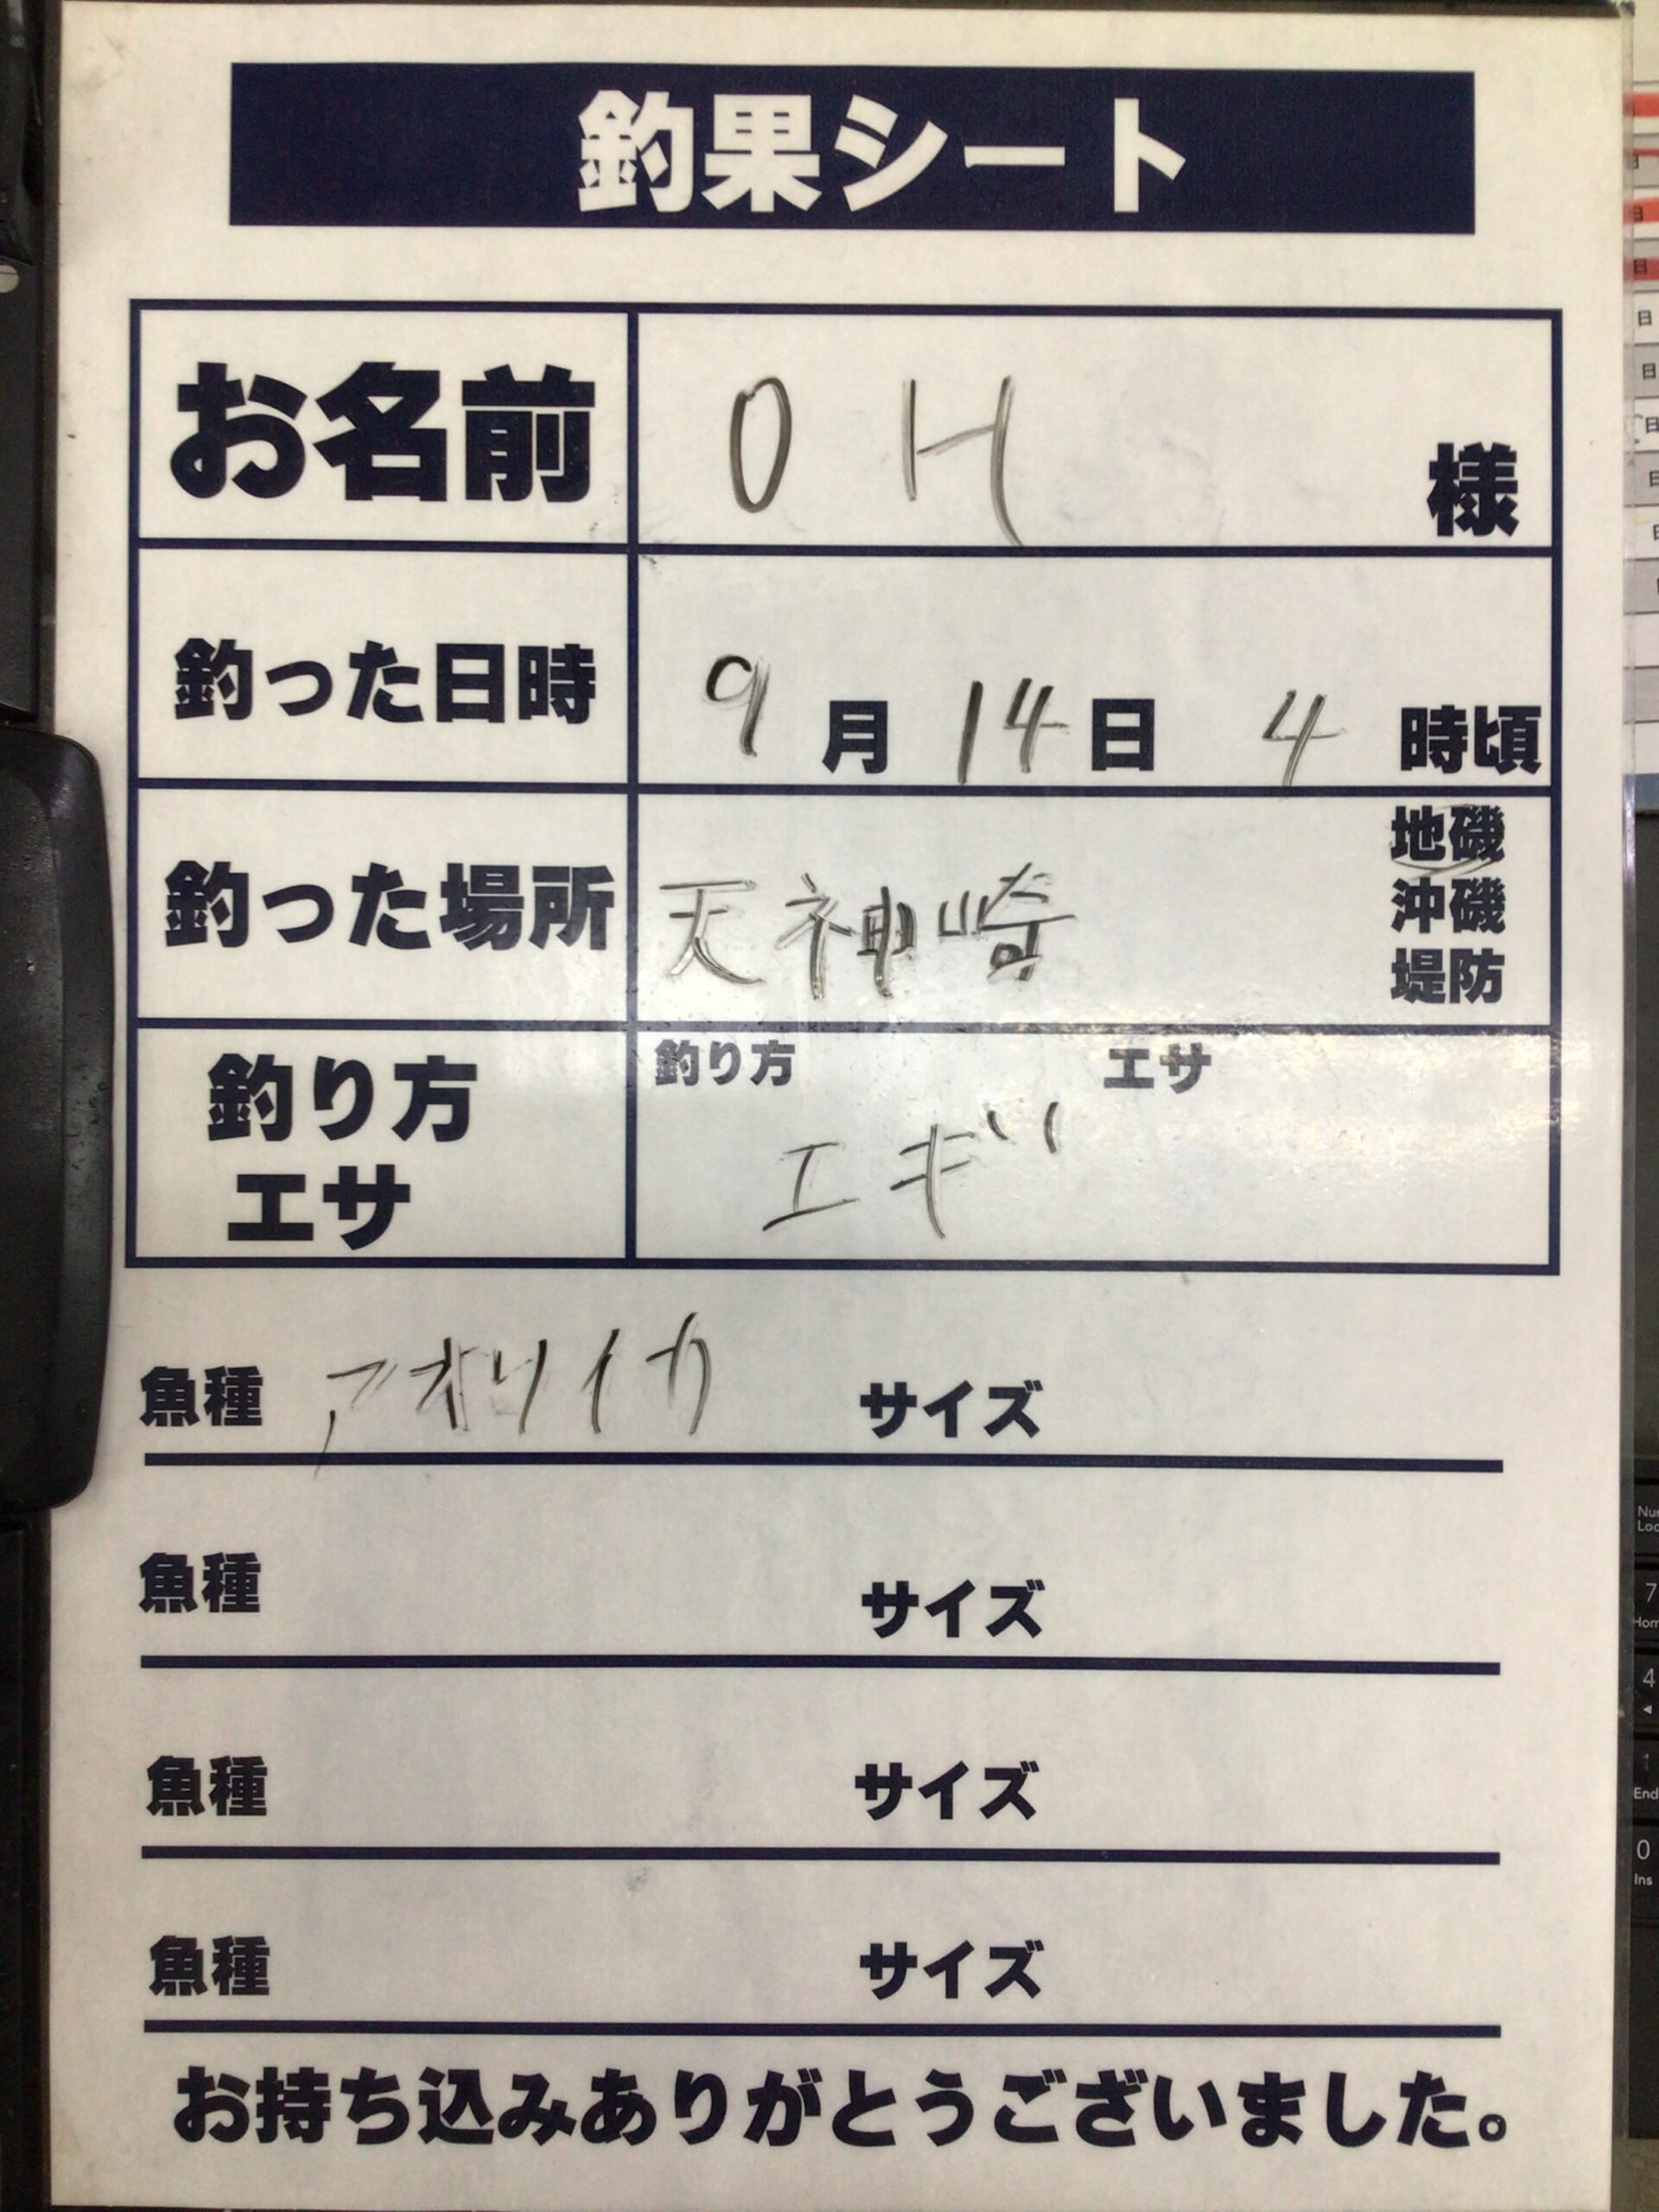 釣果シート
お名前 O H 様
釣った日時 9月14日 4時頃
釣った場所 天神崎 地磯
沖磯
堤防
釣り方 エサ 釣り方 エサ
エギ
魚種 アオリイカ サイズ
魚種 サイズ
魚種 サイズ
魚種 サイズ
お持ち込みありがとうございました。
日
日
日
日
日
日
日
Num
Loc
7
Hom
4
1
End
0
Ins